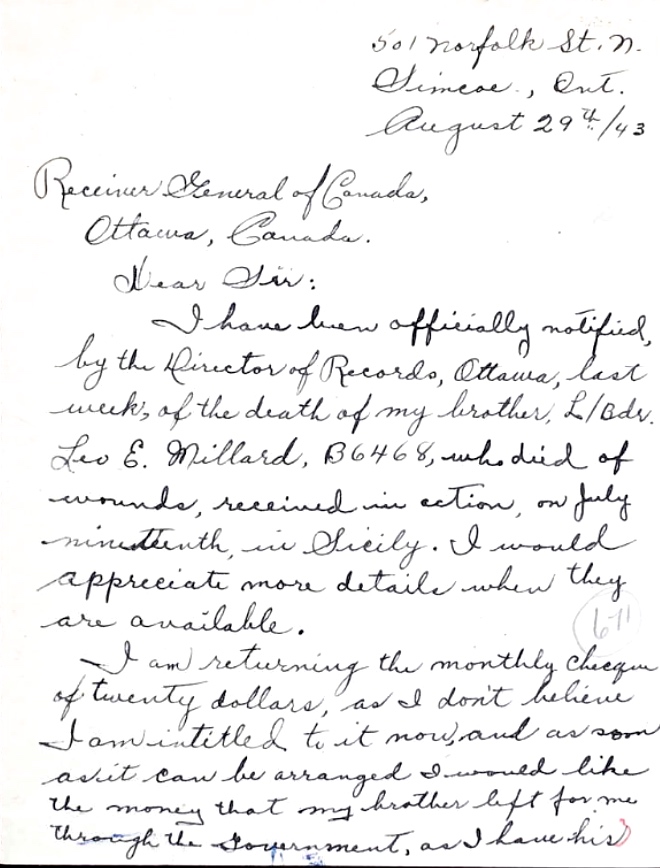 501 Norfolk St. N.
Simcoe, Ont.
August 29th/43
Receiver General of Canada,
Ottawa, Canada.
Dear Sir:
I have been officially notified,
by the Director of Records, Ottawa, last
week, of the death of my brother, L/Bdr.
Leo E. Millard, B6468, who died of
wounds, received in action, on July
nineteenth, in Sicily. I would
appreciate more details when they
are available.
671
I am returning the monthly cheque
of twenty dollars, as I don't believe
I am intitled to it now, and as soon
as it can be arranged I would like
the money that my brother left for me
through the Government, as I have his